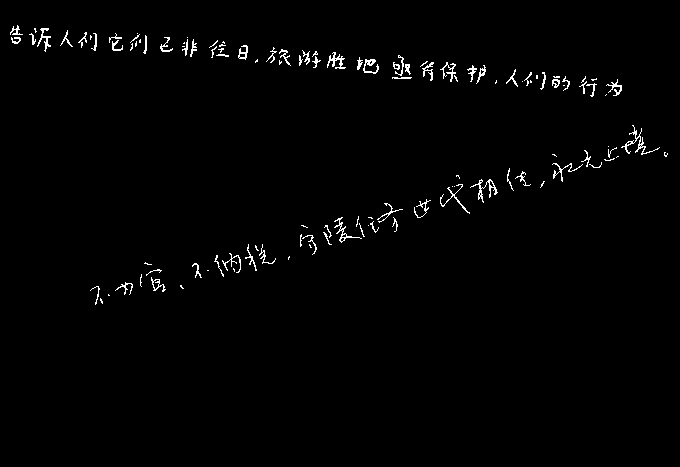 告诉人们它们已非往日,旅游胜地亟待保护,人们的行为
不为官、不纳税,守陵任务世代相传,永无止境。